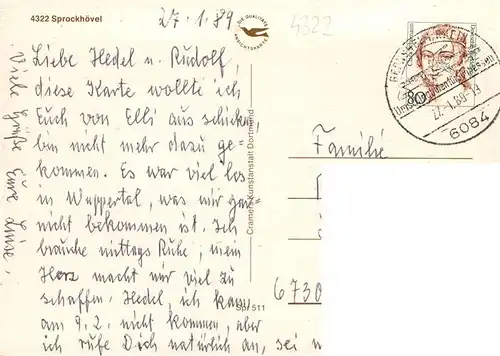 4322 Sprockhövel
27.1.89
4322
DIE QUALITÄTS
ANSICHTSKARTE
Liebe Hedel u. Rudolf,
diese Karte wollte ich
Euch von Elli aus schicken,
bin nicht mehr dazu ge-
kommen. Es war viel los
in Wuppertal, was mir gar
nicht bekommen ist. Ich
brauche mittags Ruhe; mein
Herz macht mir viel zu
schaffen. Hedel, ich kann
am 9.2. nicht kommen, aber
ich rufe Dich natürlich an, sei
Viele Grüße Eure Luise.
Cramers Kunstanstalt Dortmund
511
80
27.-1.89-13
6084
Familie
6730